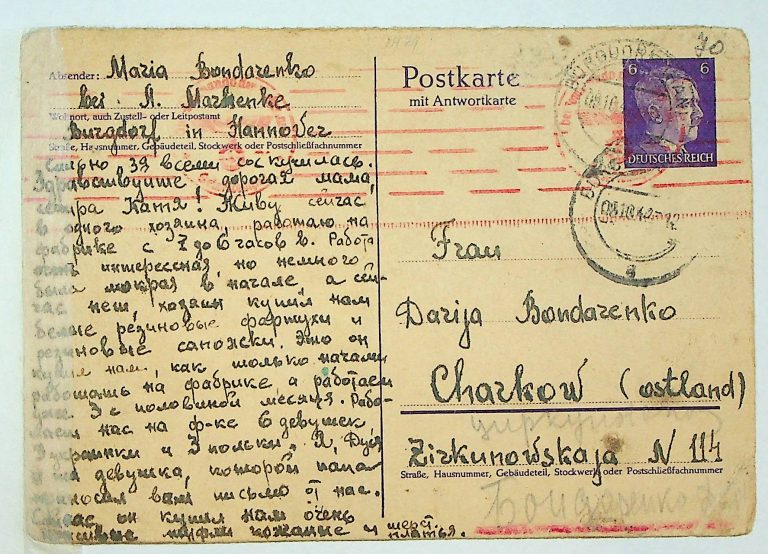 Absender: Maria Bondarenko
bei A.
Wohnort, auch Zustell- oder Leitpostamt
Burgdorf in Hannover
Straße, Hausnummer, Gebäudeteil, Stockwerk oder Postschließfachnummer
за всеми соскучилась.
Здравствуйте дорогая мама,
сестра Катя! Живу сейчас,
в одного хозяина, работаю на
фабрике с 7 до 6 часов в. Работа
очень интерессная, но немного
была мокрая в начале, а сей-
час нет, хозяин купил нам
белые резиновые фартухи и
резиновые сапожки. Это он
купил нам, как только начали
работать на фабрике, а работаем
уже 3 с половиной месяца. Рабо-
таем нас на ф-ке 6 девушек,
3 украинки и 3 польки. Я, Дуся
и та девушка, которой папа
приносил вам письмо от нас.
Сейчас он купил нам очень
красивые туфли кожание и шерст. платья.
Postkarte
mit Antwortkarte
70
6 6
DEUTSCHES REICH
BURGDORF
08.10.42
Frau
Darija Bondarenko
Charkow (ostland)
Zirkunowskaja N 114
Straße, Hausnummer, Gebäudeteil, Stockwerk oder Postschließfachnummer
Бондаренко